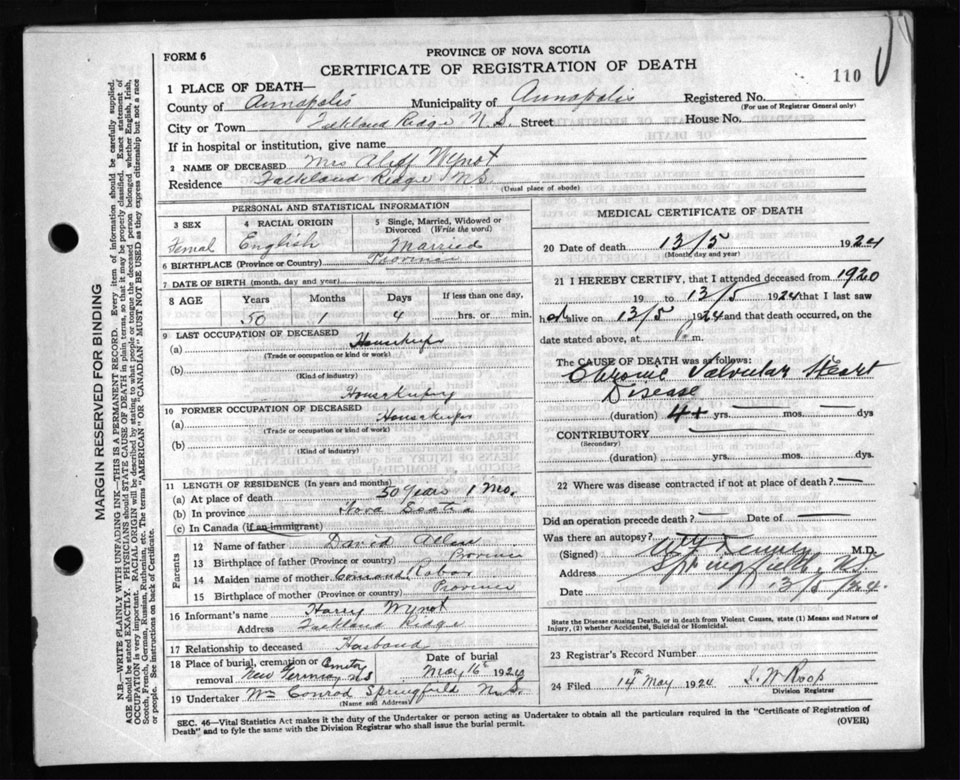 FORM 6
PROVINCE OF NOVA SCOTIA
CERTIFICATE OF REGISTRATION OF DEATH
110
1 PLACE OF DEATH—
County of Annapolis Municipality of Annapolis Registered No.
(For use of Registrar General only)
City or Town Falkland Ridge N.S. Street House No.
If in hospital or institution, give name
2 NAME OF DECEASED Mrs Wynot
Residence Falkland Ridge N.S.
(Usual place of abode)
PERSONAL AND STATISTICAL INFORMATION
3 SEX 4 RACIAL ORIGIN 5 Single, Married, Widowed or Divorced (Write the word)
Femal English Married
6 BIRTHPLACE (Province or Country) Province
7 DATE OF BIRTH (month, day and year)
8 AGE Years Months Days If less than one day,
50 1 4 hrs. or min.
9 LAST OCCUPATION OF DECEASED
(a) Housekeeper
(Trade or occupation or kind or work)
(b)
(Kind of industry)
Housekeeping
10 FORMER OCCUPATION OF DECEASED
(a) Housekeeper
(Trade or occupation or kind of work)
(b)
(Kind of industry)
11 LENGTH OF RESIDENCE (In years and months)
(a) At place of death 50 Years 1 Mo.
(b) In province Nova Scotia
(c) In Canada (if an immigrant)
Parents
12 Name of father David Allen
13 Birthplace of father (Province or country)
14 Maiden name of mother
15 Birthplace of mother (Province or country) Province
16 Informant's name Harry Wynot
Address Falkland Ridge
17 Relationship to deceased Husband
18 Place of burial, cremation or removal New Germany N.S. Date of burial May 16 1924
19 Undertaker Wm Conrod Springfield N.S.
(Name and Address)
MEDICAL CERTIFICATE OF DEATH
20 Date of death 13/5 1924
(Month, day and year)
21 I HEREBY CERTIFY, that I attended deceased from 1920
19 to 13/5 1924 that I last saw
h alive on 13/5 1924 and that death occurred, on
date stated above, at P. m.
The CAUSE OF DEATH was as follows:
Chronic Valvular Heart
Disease
(duration) 4+ yrs. mos. dys
CONTRIBUTORY
(Secondary)
(duration) yrs. mos. dys.
22 Where was disease contracted if not at place of death? —
Did an operation precede death? — Date of —
Was there an autopsy?
(Signed) M.D.
Address Springfield, N.S.
Date 13/5/24.
State the Disease causing Death, or in death from Violent Causes, state (1) Means and Nature of Injury, (2) whether Accidental, Suicidal or Homicidal.
23 Registrar's Record Number
24 Filed 14th May 1924 Roop
Division Registrar
SEC. 46—Vital Statistics Act makes it the duty of the Undertaker or person acting as Undertaker to obtain all the particulars required in the "Certificate of Registration of
Death" and to fyle the same with the Division Registrar who shall issue the burial permit. (OVER)
MARGIN RESERVED FOR BINDING
N.B.—WRITE PLAINLY WITH UNFADING INK—THIS IS A PERMANENT RECORD. Every item of information should be carefully supplied.
AGE should be stated EXACTLY. PHYSICIANS should STATE CAUSE OF DEATH in plain terms, so that it may be properly classified. Exact statement of
OCCUPATION is very important. RACIAL ORIGIN will be described by stating to what people or tongue the deceased person belonged whether English, Irish,
Scotch, French, German, Russian, Ruthenian, etc. The terms "AMERICAN" OR "CANADIAN" MUST NOT BE USED as they express citizenship but not a race
or people. See instructions on back of Certificate.